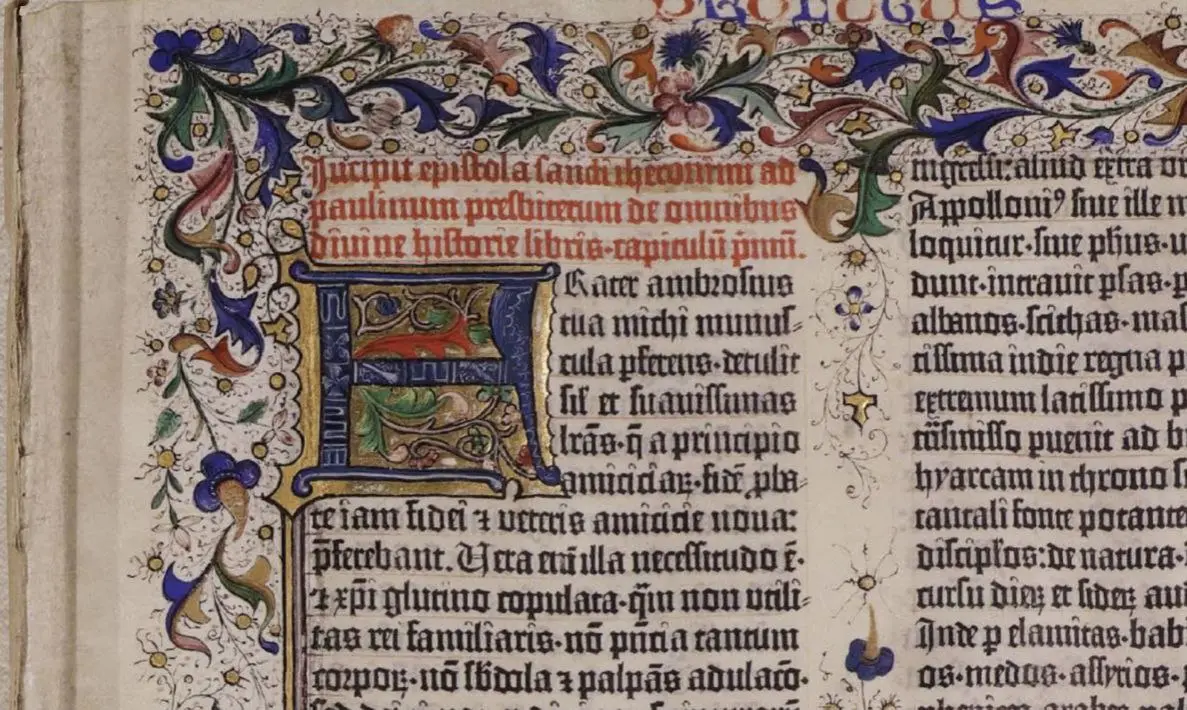 PROLOGUS
Incipit epistola sancti iheronimi ad
paulinum presbiterum de omnibus
diuine historie libris·capitulū p̄mū.
FRater ambrosius
tua michi munus-
cula ꝑferens·detulit
sił et suauissimas
lr̄as·q̄ a principio
amiciciaꝝ·fidē ꝓba-
te iam fidei ⁊ veteris amicicie noua:
p̄ferebant. Vera em̄ illa necessitudo ē·
⁊ xp̄i glutino copulata·q̄m non vtili-
tas rei familiaris·nō pn̄cia tantum
corpoꝝ·nō sb̄dola ⁊ palpās adulac̄o·
ingressi: aliud extra
Appolloniꝰ siue ille m
loquitur·siue ph̄us·
dunt·intrauit ꝑsas·p
albanos·scithas·mas
tissima indie regna p
extremum latissimo p
trāsmisso ꝑuenit ad
hyarcam in throno
tantali fonte potante
discipl̄os: de natura·
cursu dieꝝ et sideꝝ au
Inde ꝑ elamitas·bab
os·medos·assyrios·